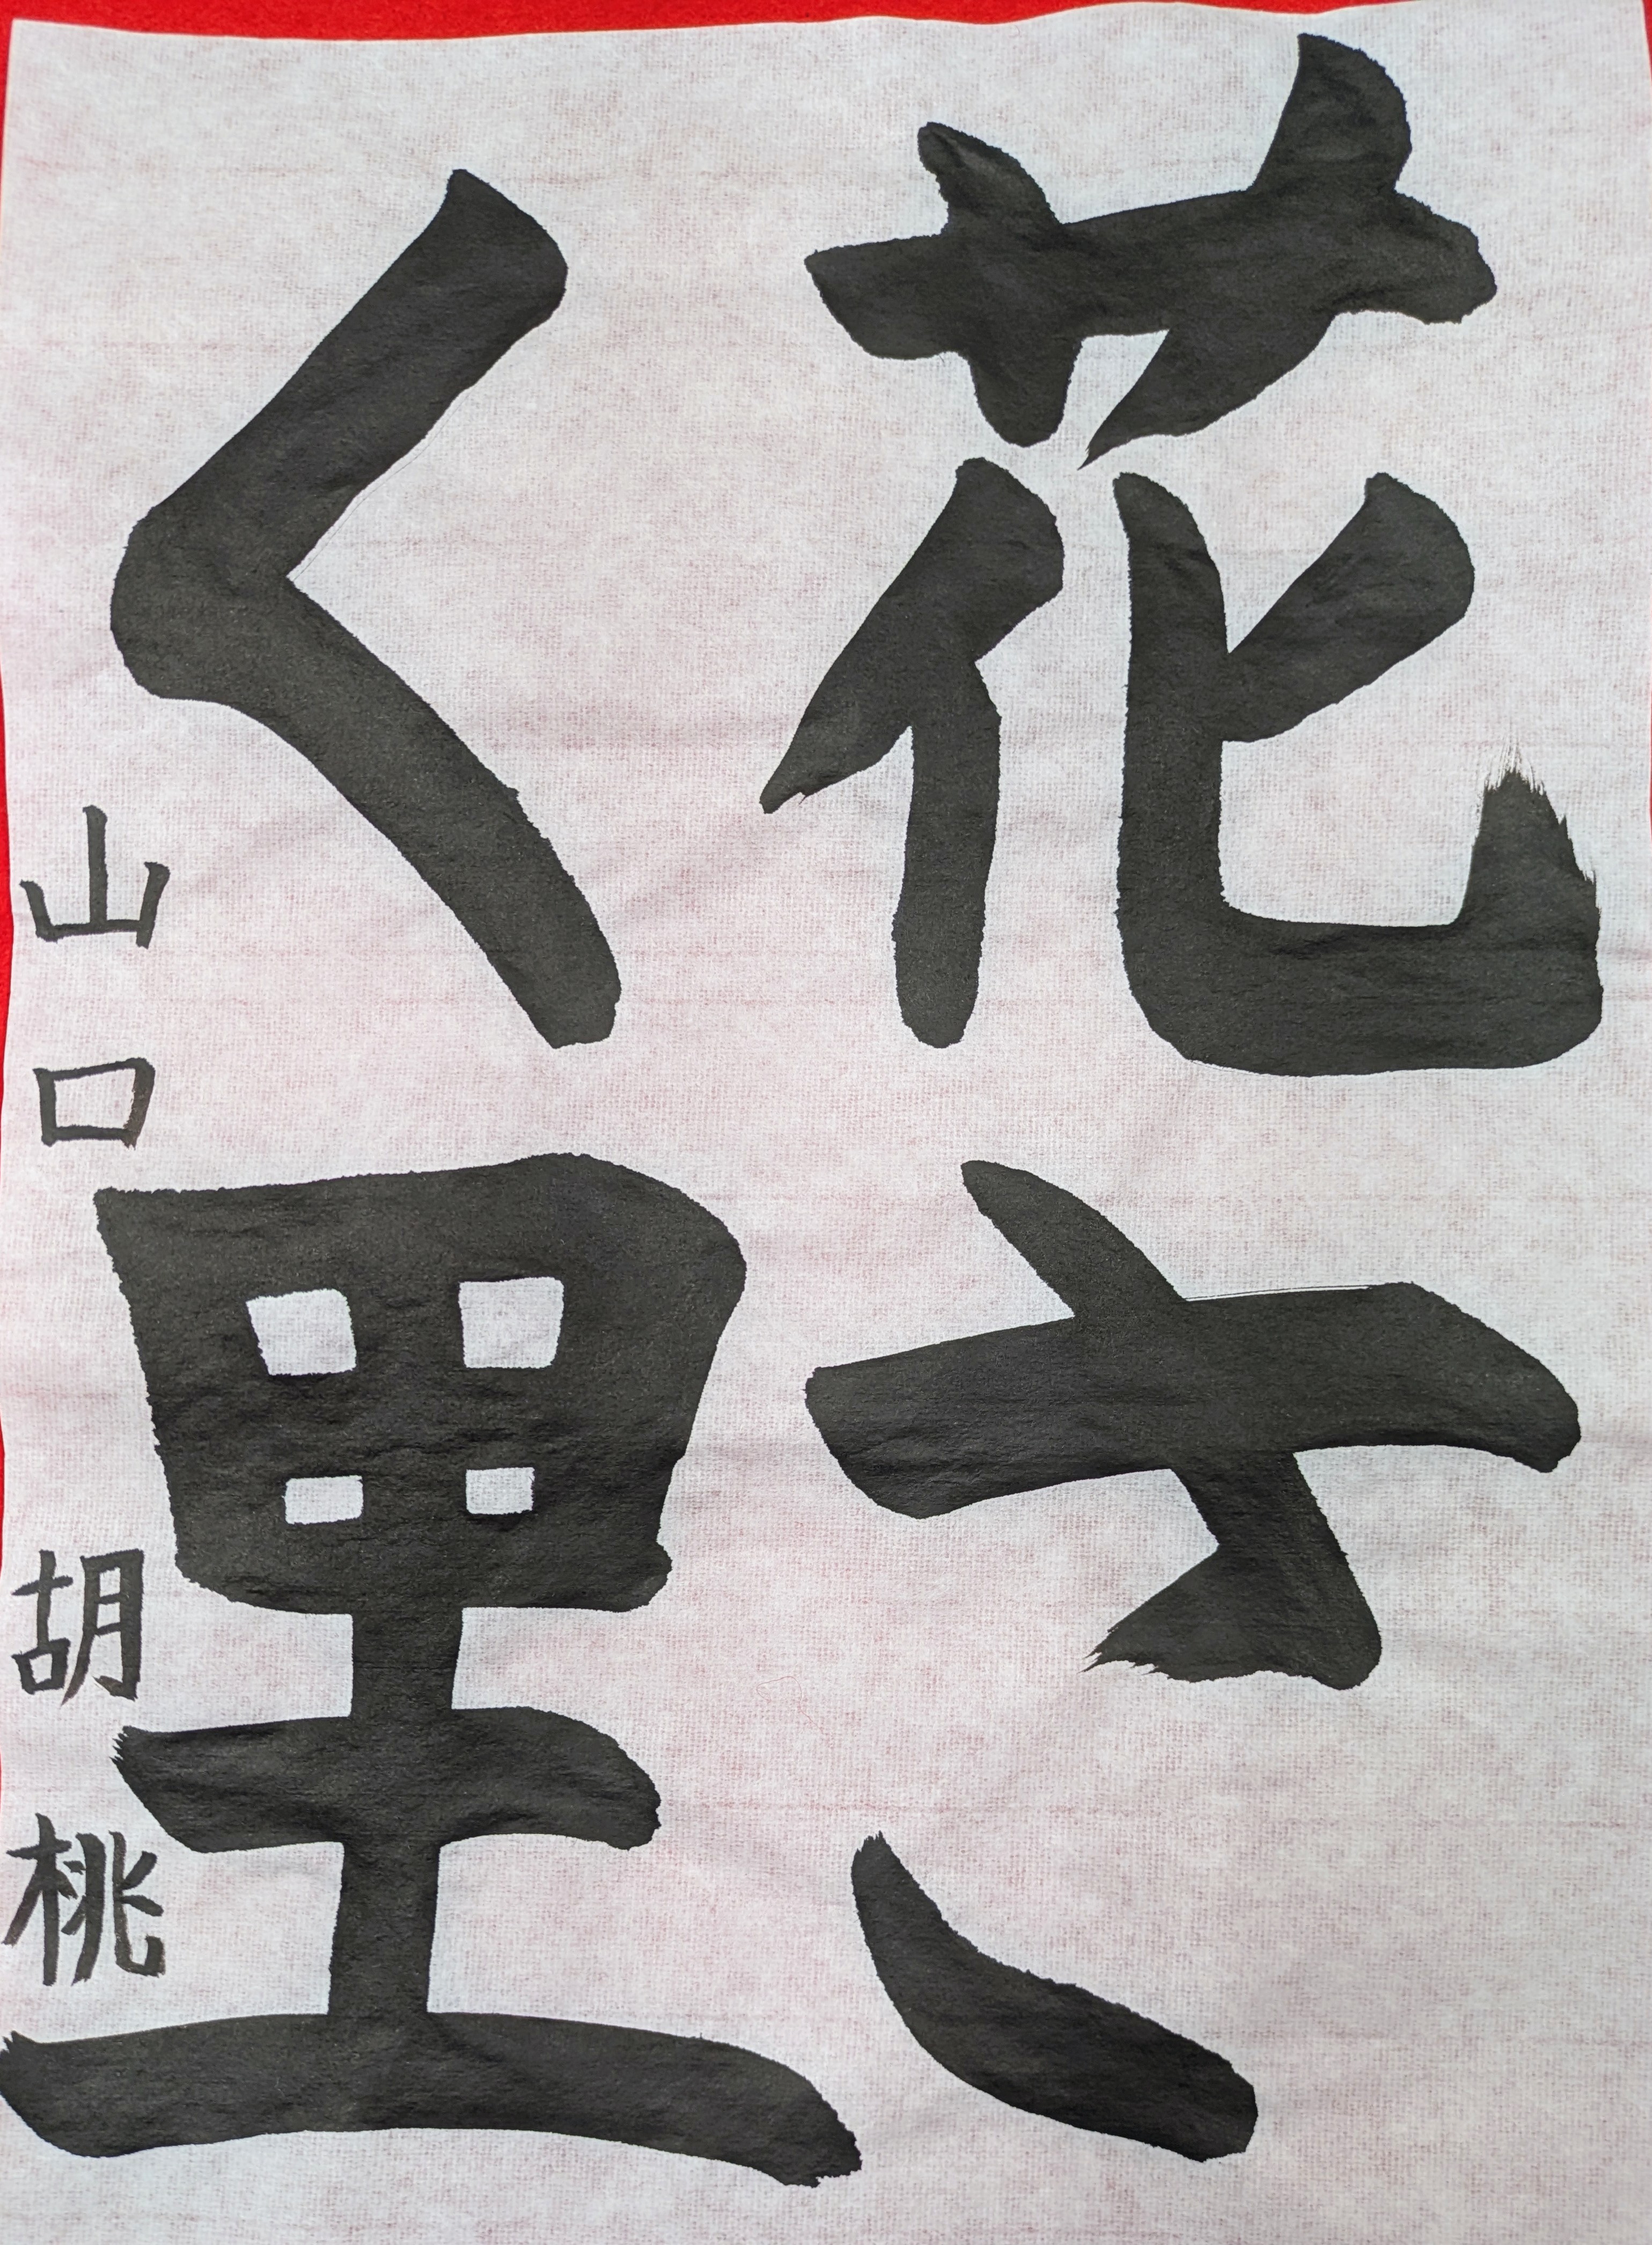 花さ
く里
山口胡桃